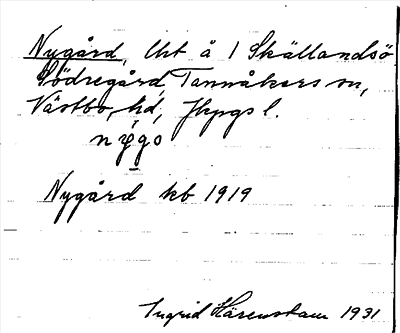 Nygård, lht å 1 Skällandsö
Södregård, Tannåkers sn,
Västbo hd, Jkpgs l.
nýgo
Nygård kb 1919
Ingrid Härenstam 1931